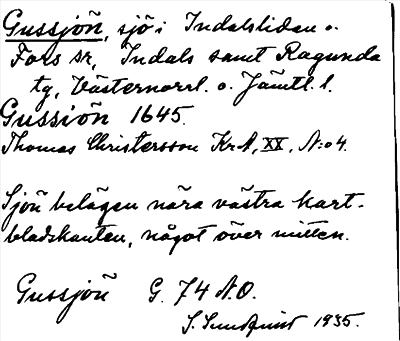 Gussjön, sjö i Indalsliden o.
Fors sr, Indals samt Ragunda
tg, Västernorrl. o. Jämtl. l.
Gussiön 1645.
Thomas Christersson Kr.A, XX, N:o 4.
Sjön belägen nära västra kart-
bladskanten, något över mitten.
Gussjön G. 74 N.O.
S. Sundquist 1935.